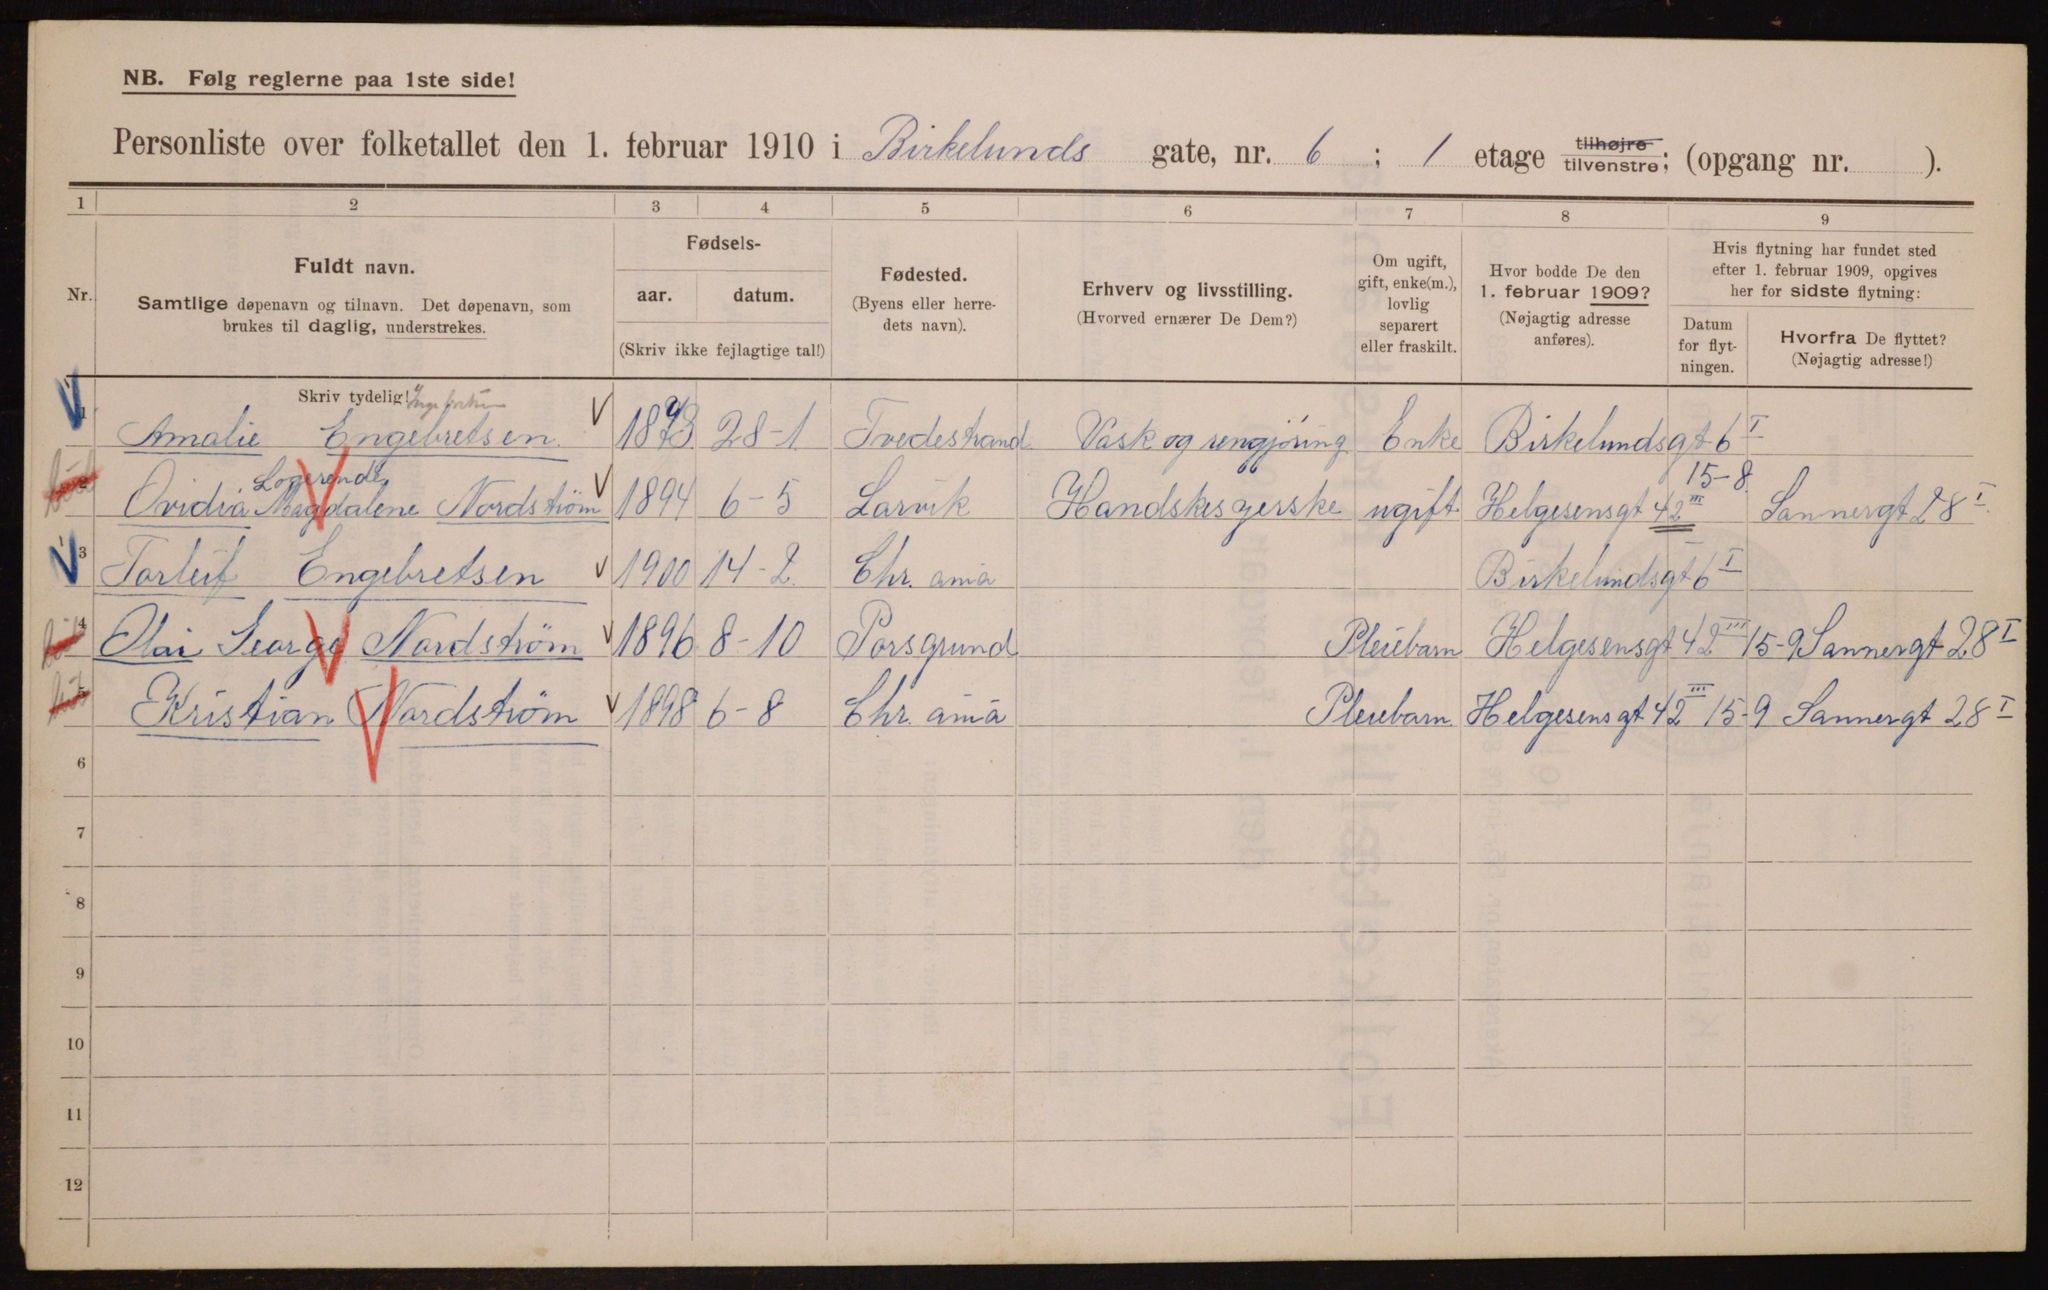 NB. Følg reglerne paa 1ste side!
Personliste over folketallet den 1. februar 1910 i Birkelunds gate, nr. 6 ; 1 etage tilhøjre tilvenstre; (opgang nr. ).
1 2 3 4 5 6 7 8 9
Nr.
Fuldt navn.
Samtlige døpenavn og tilnavn. Det døpenavn, som
brukes til daglig, understrekes.
Fødsels-
aar. datum.
(Skriv ikke fejlagtige tal!)
Fødested.
(Byens eller herre-
dets navn).
Erhverv og livsstilling.
(Hvorved ernærer De Dem?)
Om ugift,
gift, enke(m.),
lovlig
separert
eller fraskilt.
Hvor bodde De den
1. februar 1909?
(Nøjagtig adresse
anføres).
Hvis flytning har fundet sted
efter 1. februar 1909, opgives
her for sidste flytning:
Datum
for flyt-
ningen.
Hvorfra De flyttet?
(Nøjagtig adresse!)
Skriv tydelig!
1 Amalie Engebretsen 28-1 Tvedestrand Vask og rengjøring Enke Birkelundsgt 6 I
Logerende
2 Ovidia Magdalene Nordstrøm 1894 6-5 Larvik Handskesyerske ugift Helgesensgt 42 III 15-8 Sannergt 28 I
3 Torleif Engebretsen 1900 14-2. Chr. ania Birkelundsgt 6 I
4 Olai George Nordstrøm 1896 8-10 Porsgrund Pleiebarn Helgesensgt 42 III 15-9 Sannergt 28 I
5 Kristian Nordstrøm 1898 6-8 Chr. ania Pleiebarn Helgesensgt 42 III 15-9 Sannergt 28 I
6
7
8
9
10
11
12